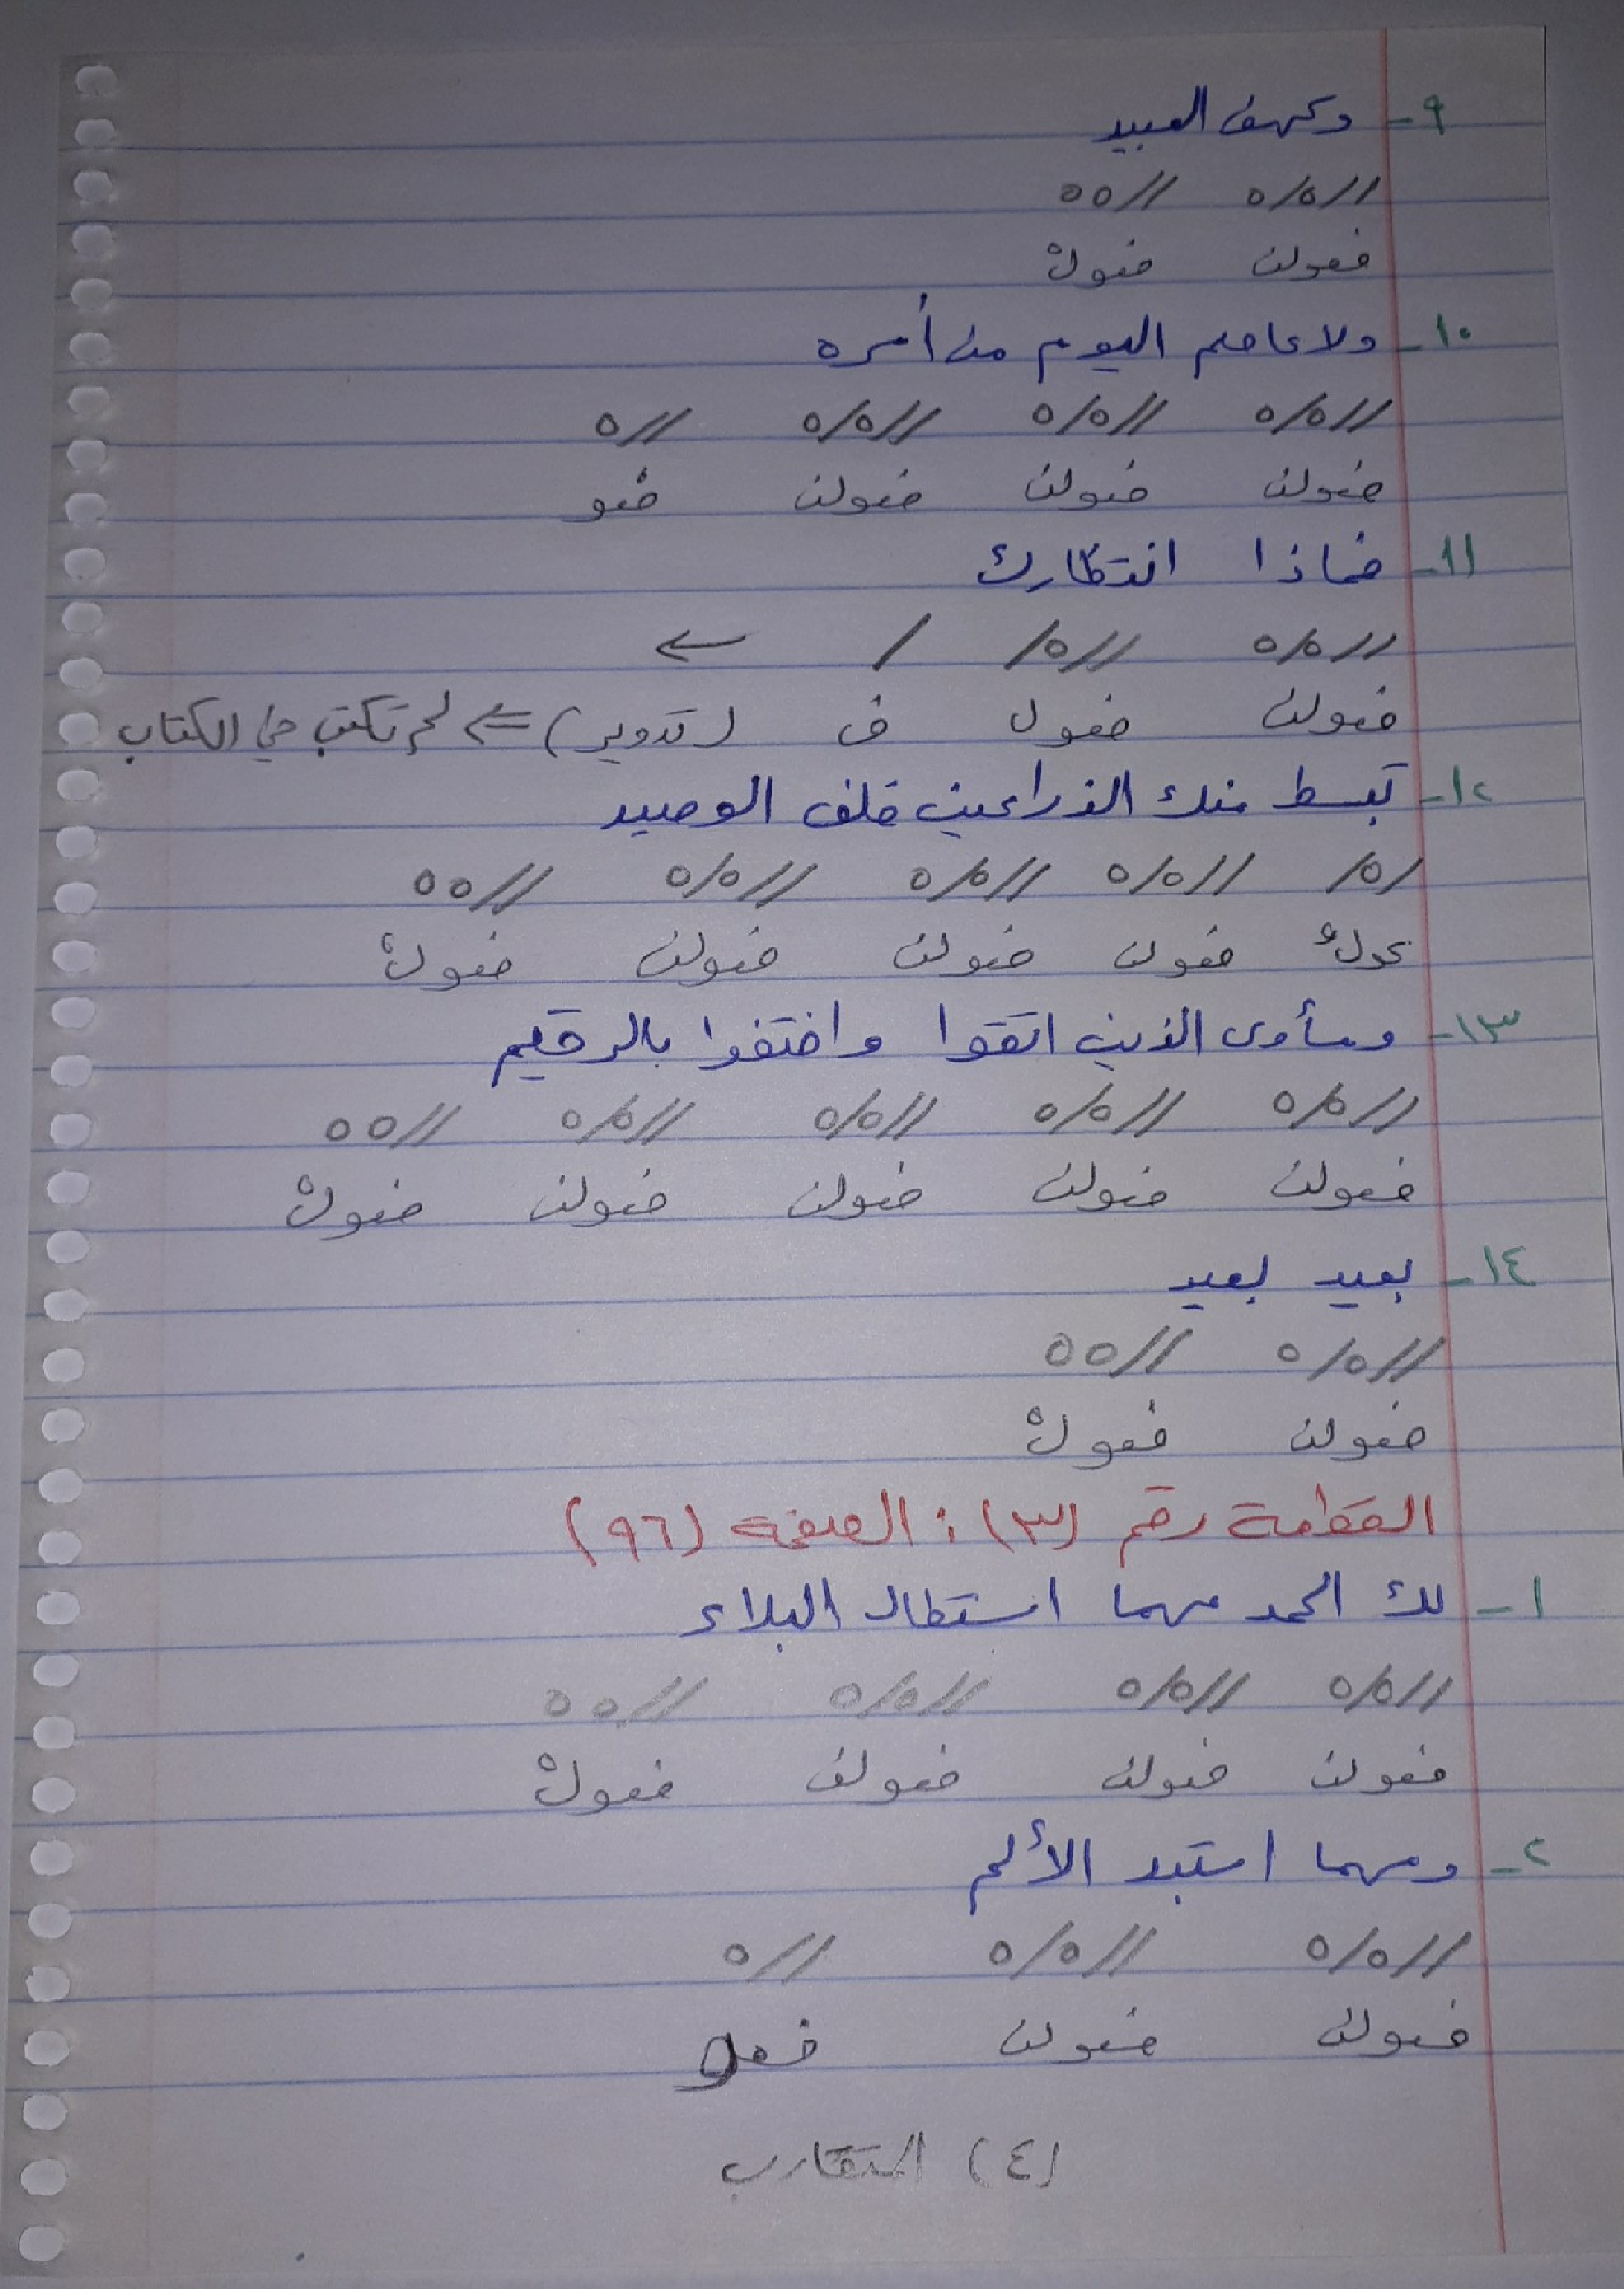 ٩- وكهف العبيد
//o/o //oo
فعولن فعولْ
١٠- ولا عاصم اليوم من أمره
//o/o //o/o //o/o //o
فعولن فعولن فعولن فعو
١١- فماذا انتظارك
//o/o //o/ / ←
فعولن فعول ف (تدوير) ⇐ لم تكتب في الكتاب
١٢- تبسط منك الذراعين خلف الوصيد
/o/ //o/o //o/o //o/o //oo
عولُ فعولن فعولن فعولن فعولْ
١٣- ومأوى الذين اتقوا واختفوا بالرقيم
//o/o //o/o //o/o //o/o //oo
فعولن فعولن فعولن فعولن فعولْ
١٤- بعيد بعيد
//o/o //oo
فعولن فعولْ
القطعة رقم (٣) : الصفحة (٩٦)
١- لك الحمد مهما استطال البلاء
//o/o //o/o //o/o //oo
فعولن فعولن فعولن فعولْ
٢- ومهما استبد الألم
//o/o //o/o //o
فعولن فعولن فعو
(٤) المتقارب